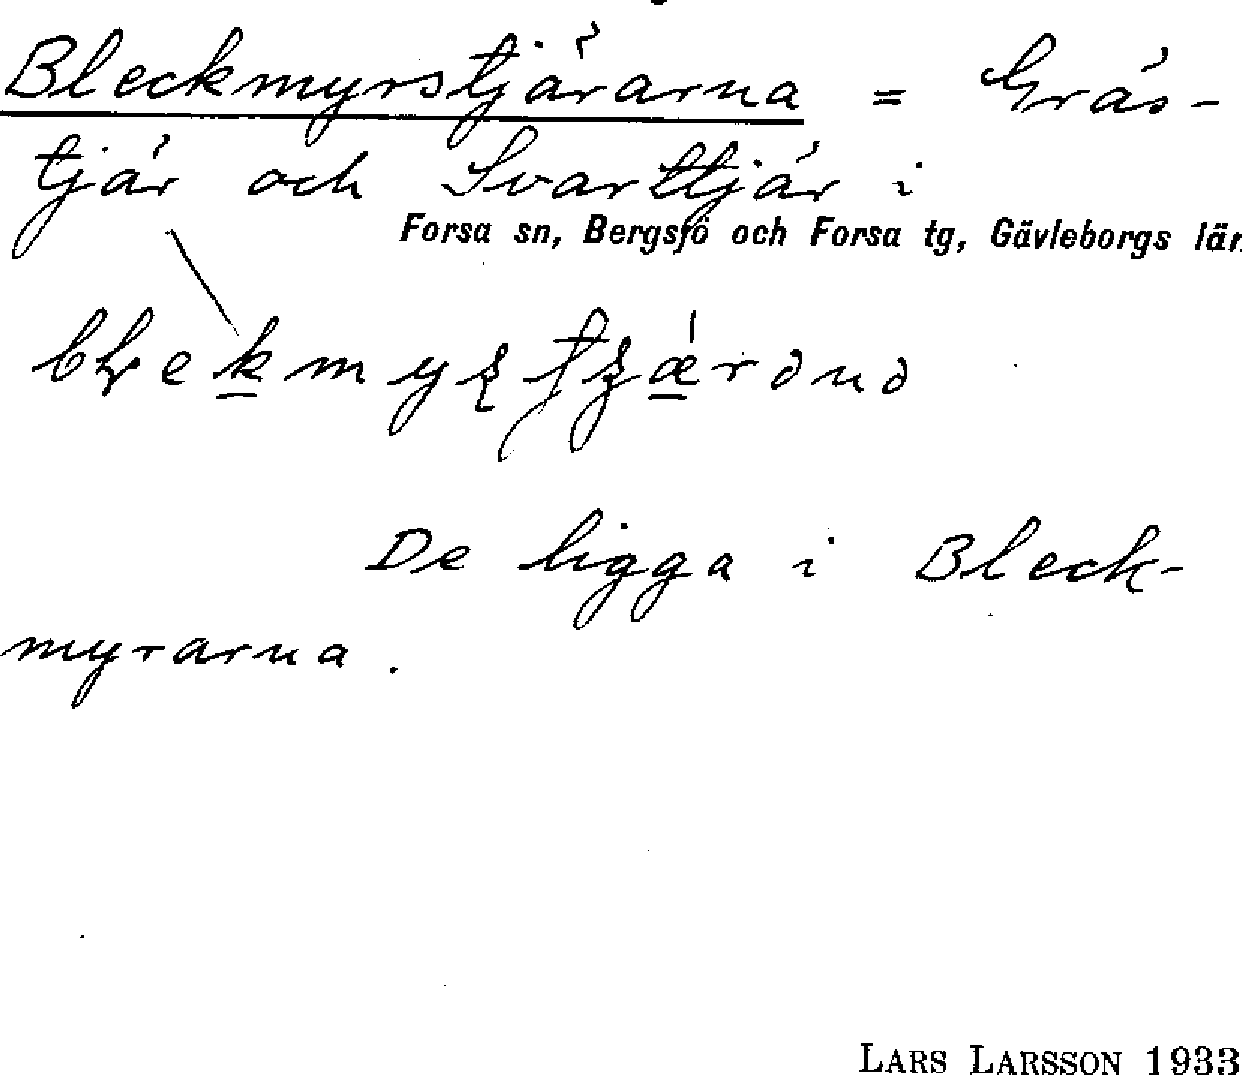 Bleckmyrstjärarna = Gräs-
tjär och Svarttjär i
Forsa sn, Bergsjö och Forsa tg, Gävleborgs län
De ligga i Bleck-
myrarna.
LARS LARSSON 1933